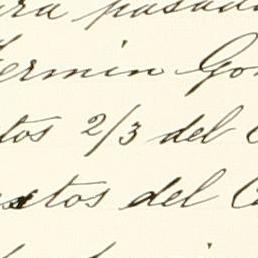 ra pasad
ermin Go
tos 2/3 del C
tos del C